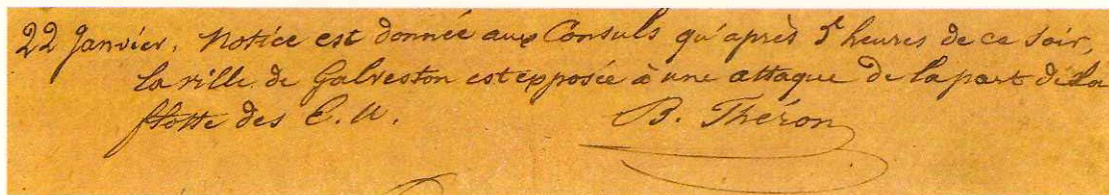 22 Janvier. Notice est donnée aux Consuls qu'après 5 heures de ce soir,
la ville de Galveston est exposée à une attaque de la part de la
flotte des E. U.
B. Théron